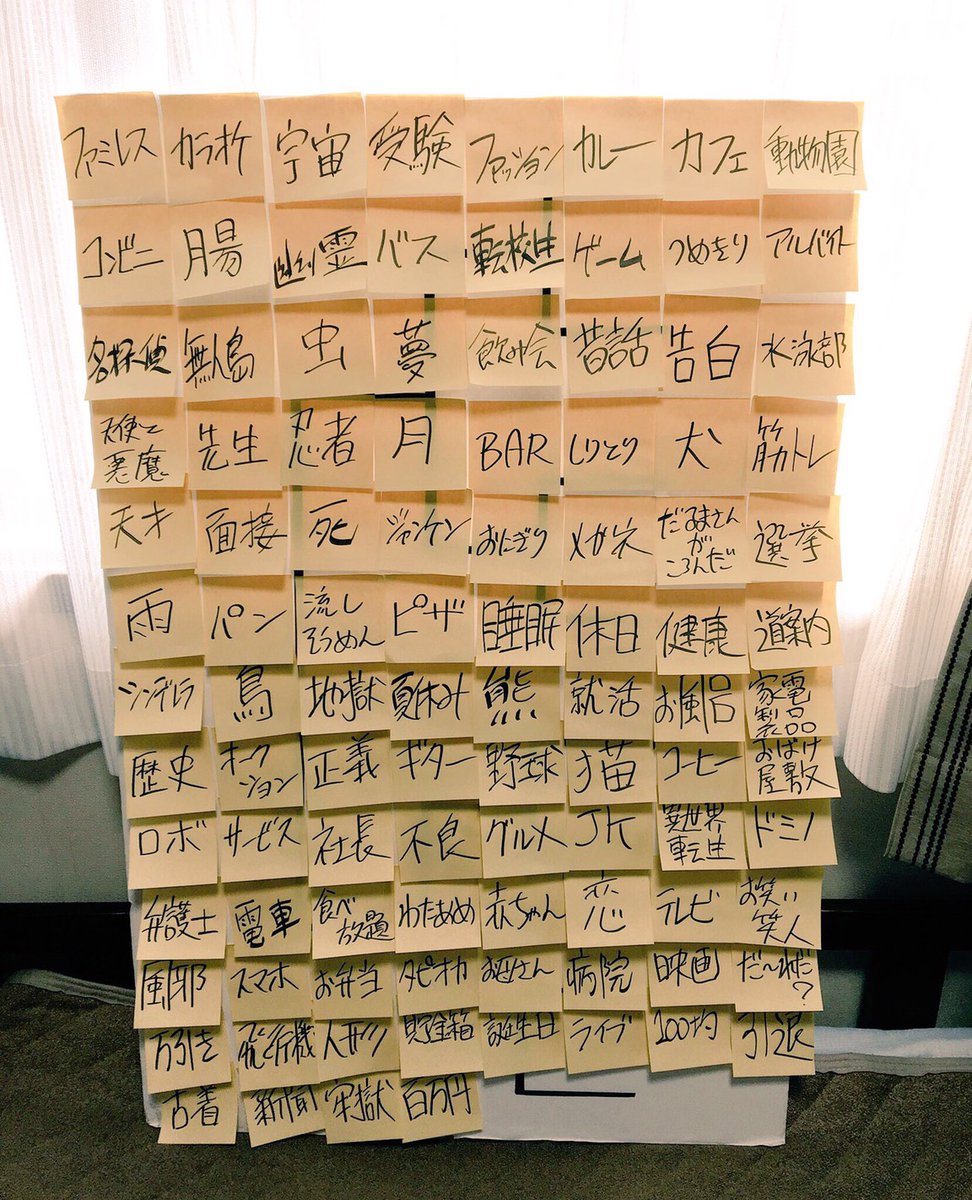 ファミレス カラオケ 宇宙 受験 ファッション カレー カフェ 動物園
コンビニ 腸 幽霊 バス 転校生 ゲーム つめきり アルバイト
名探偵 無人島 虫 夢 飲み会 昔話 告白 水泳部
天使と
悪魔 先生 忍者 月 BAR しりとり 犬 筋
筋力トレ
天才 面接 死 ジャンケン おにぎり メガネ だるまさん
が
ころんだ 選挙
雨 パン 流し
そうめん ピザ 睡眠 休日 健康 道案内
シンデレラ 鳥 地獄 夏休み 熊 就活 お風呂 家電
製品
歴史 オーク
ション 正義 ギター 野球 猫 コーヒー おばけ
屋敷
ロボ サービス 社長 不良 グルメ JK 異世界
転生 ドミノ
弁護士 電車 食べ
放題 わたあめ 赤ちゃん 恋 テレビ お笑い
芸人
風邪 スマホ お弁当 タピオカ お母さん 病院 映画 だ〜れだ
?
万引き 飛行機 人形 貯金箱 誕生日 ライブ 100均 引退
古着 新聞 牢獄 百万円